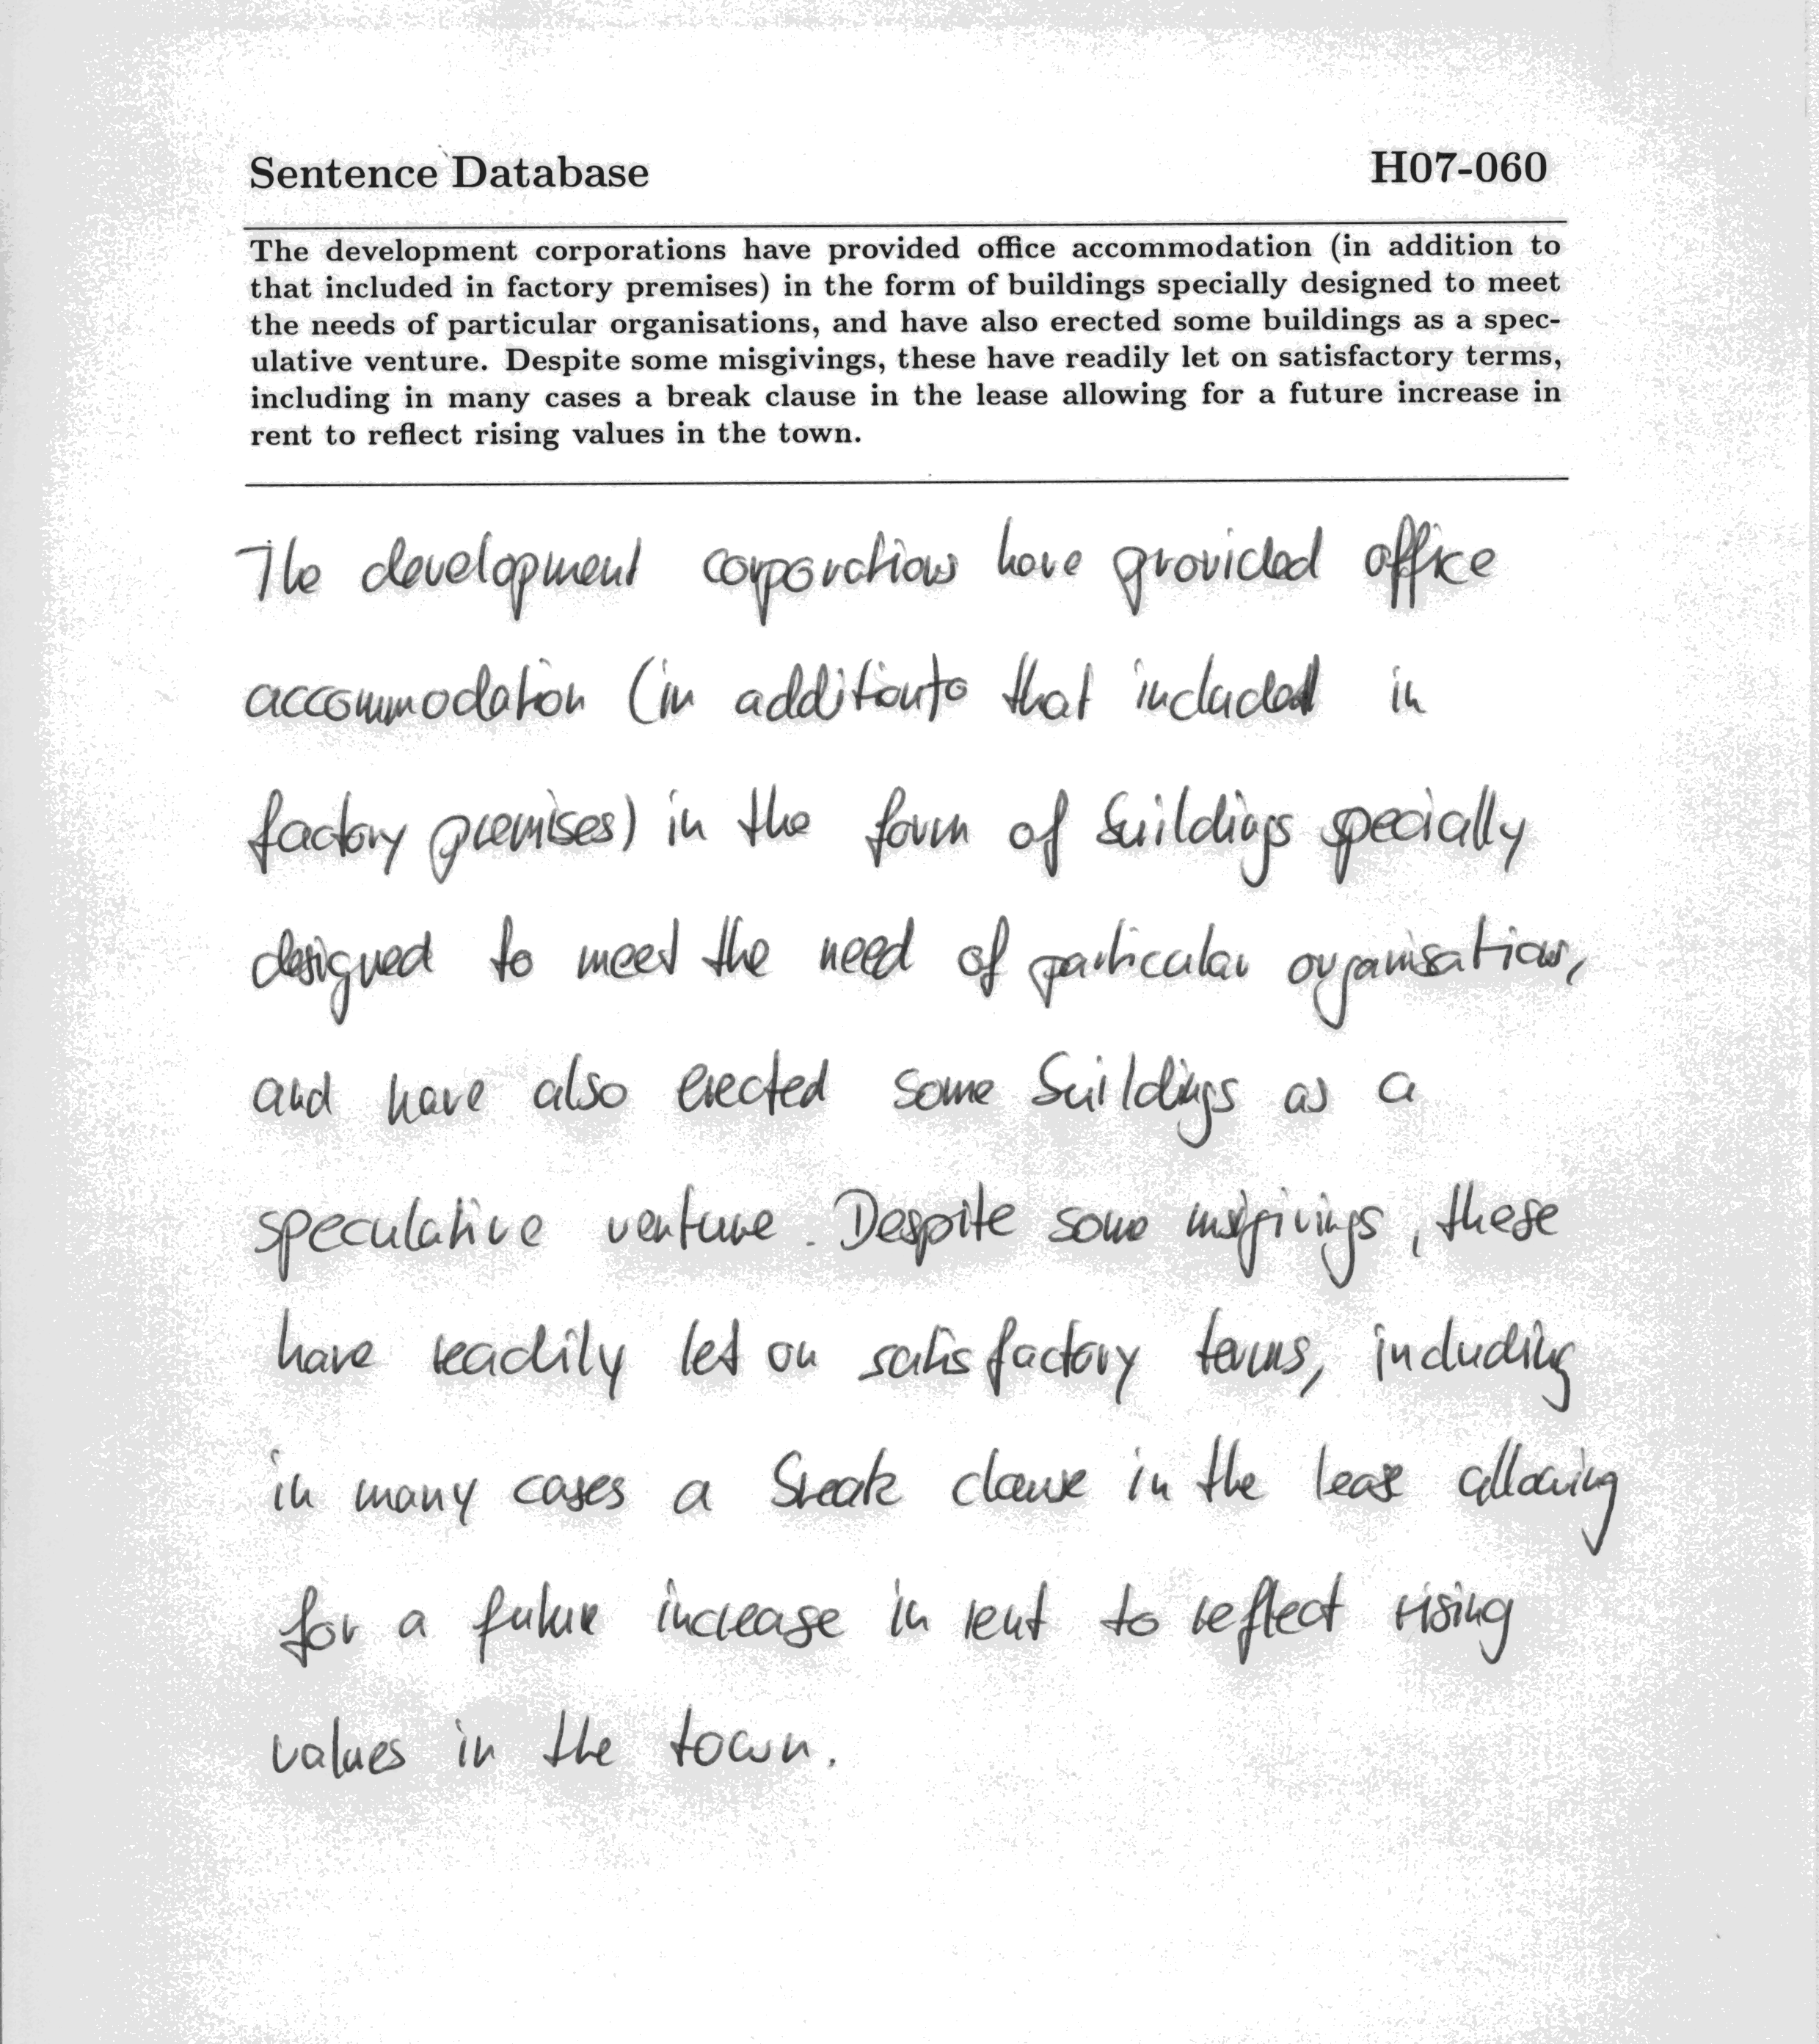 Sentence Database H07-060
The development corporations have provided office accommodation (in addition to
that included in factory premises) in the form of buildings specially designed to meet
the needs of particular organisations, and have also erected some buildings as a spec-
ulative venture. Despite some misgivings, these have readily let on satisfactory terms,
including in many cases a break clause in the lease allowing for a future increase in
rent to reflect rising values in the town.
The development corporations have provided office
accommodation (in addition to that included in
factory premises) in the form of buildings specially
designed to meet the need of particular organisations,
and have also erected some buildings as a
speculative venture. Despite some misgivings, these
have readily let on satisfactory terms, including
in many cases a break clause in the lease allowing
for a future increase in rent to reflect rising
values in the town.